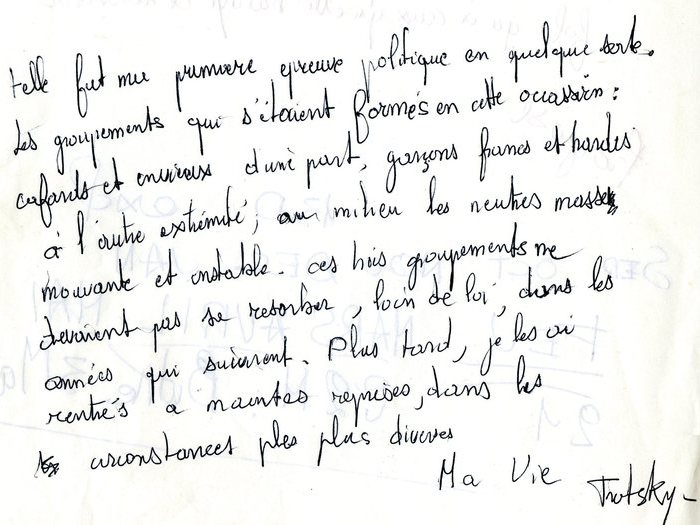 telle fut ma première épreuve politique en quelque sorte.
Les groupements qui s'étaient formés en cette occasion :
cafards et envieux d'une part, garçons francs et hardis
à l'autre extrémité ; au milieu les neutres masse
mouvante et instable. ces trois groupements ne
devaient pas se resorber, loin de loi, dans les
années qui suivirent. Plus tard, je les ai
rentrés a maintes reprises, dans les
circonstances ples plus diverses
Ma Vie Trotsky -